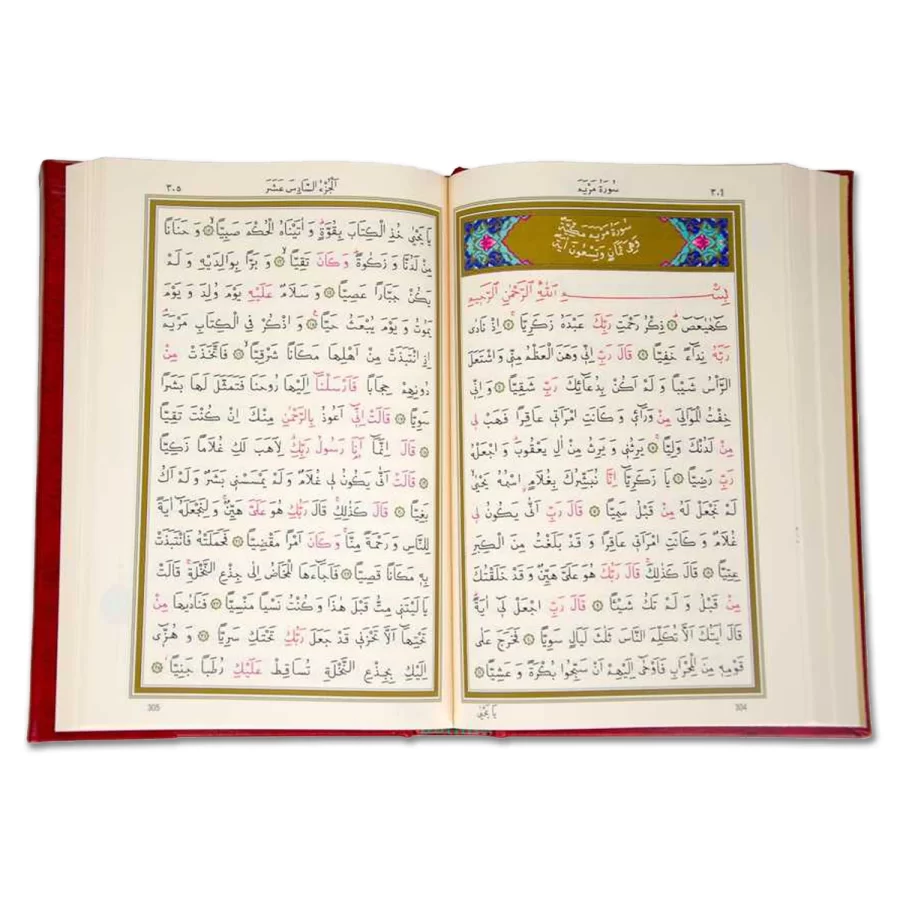 ٣٠٤
سُورَةُ مَرْيَمَ
سُورَةُ مَرْيَمَ مَكِّيَّةٌ
وَهِيَ ثَمَانٍ وَتِسْعُونَ اٰيَةً
بِسْــــــمِ اللّٰهِ الرَّحْمٰنِ الرَّحِيمِ
كٓهٰيٰعٓصٓ ۝ ذِكْرُ رَحْمَتِ رَبِّكَ عَبْدَهُ زَكَرِيَّا ۝ اِذْ نَادٰى
رَبَّهُ نِدَٓاءً خَفِيًّا ۝ قَالَ رَبِّ اِنِّي وَهَنَ الْعَظْمُ مِنِّي وَاشْتَعَلَ
الرَّأْسُ شَيْبًا وَ لَمْ اَكُنْ بِدُعَٓائِكَ رَبِّ شَقِيًّا ۝ وَ اِنِّي
خِفْتُ الْمَوَالِيَ مِنْ وَرَٓائِي وَ كَانَتِ امْرَاَتِي عَاقِرًا فَهَبْ لِي
مِنْ لَدُنْكَ وَلِيًّا ۝ يَرِثُنِي وَ يَرِثُ مِنْ اٰلِ يَعْقُوبَ وَ اجْعَلْهُ
رَبِّ رَضِيًّا ۝ يَا زَكَرِيَّٓا اِنَّا نُبَشِّرُكَ بِغُلَامٍ اسْمُهُ يَحْيٰى
لَمْ نَجْعَلْ لَهُ مِنْ قَبْلُ سَمِيًّا ۝ قَالَ رَبِّ اَنّٰى يَكُونُ لِي
غُلَامٌ وَ كَانَتِ امْرَاَتِي عَاقِرًا وَ قَدْ بَلَغْتُ مِنَ الْكِبَرِ
عِتِيًّا ۝ قَالَ كَذٰلِكَ قَالَ رَبُّكَ هُوَ عَلَيَّ هَيِّنٌ وَ قَدْ خَلَقْتُكَ
مِنْ قَبْلُ وَ لَمْ تَكُ شَيْئًا ۝ قَالَ رَبِّ اجْعَلْ لِٓي اٰيَةً
قَالَ اٰيَتُكَ اَلَّا تُكَلِّمَ النَّاسَ ثَلٰثَ لَيَالٍ سَوِيًّا ۝ فَخَرَجَ عَلٰى
قَوْمِهِ مِنَ الْمِحْرَابِ فَاَوْحٰٓى اِلَيْهِمْ اَنْ سَبِّحُوا بُكْرَةً وَ عَشِيًّا ۝
يَا يَحْيٰى
304
٣٠٥
اَلْجُزْءُ السَّادِسَ عَشَرَ
يَا يَحْيٰى خُذِ الْكِتَابَ بِقُوَّةٍ وَ اٰتَيْنَاهُ الْحُكْمَ صَبِيًّا ۝ وَ حَنَانًا
مِنْ لَدُنَّا وَ زَكٰوةً وَ كَانَ تَقِيًّا ۝ وَ بَرًّا بِوَالِدَيْهِ وَ لَمْ
يَكُنْ جَبَّارًا عَصِيًّا ۝ وَ سَلَامٌ عَلَيْهِ يَوْمَ وُلِدَ وَ يَوْمَ
يَمُوتُ وَ يَوْمَ يُبْعَثُ حَيًّا ۝ وَ اذْكُرْ فِي الْكِتَابِ مَرْيَمَ
اِذِ انْتَبَذَتْ مِنْ اَهْلِهَا مَكَانًا شَرْقِيًّا ۝ فَاتَّخَذَتْ مِنْ
دُونِهِمْ حِجَابًا فَاَرْسَلْنَٓا اِلَيْهَا رُوحَنَا فَتَمَثَّلَ لَهَا بَشَرًا
سَوِيًّا ۝ قَالَتْ اِنِّٓي اَعُوذُ بِالرَّحْمٰنِ مِنْكَ اِنْ كُنْتَ تَقِيًّا
۝ قَالَ اِنَّمَٓا اَنَا رَسُولُ رَبِّكِ لِاَهَبَ لَكِ غُلَامًا زَكِيًّا
۝ قَالَتْ اَنّٰى يَكُونُ لِي غُلَامٌ وَ لَمْ يَمْسَسْنِي بَشَرٌ وَ لَمْ اَكُ
بَغِيًّا ۝ قَالَ كَذٰلِكِ قَالَ رَبُّكِ هُوَ عَلَيَّ هَيِّنٌ وَ لِنَجْعَلَهُٓ اٰيَةً
لِلنَّاسِ وَ رَحْمَةً مِنَّا وَ كَانَ اَمْرًا مَقْضِيًّا ۝ فَحَمَلَتْهُ فَانْتَبَذَتْ
بِهِ مَكَانًا قَصِيًّا ۝ فَاَجَٓاءَهَا الْمَخَاضُ اِلٰى جِذْعِ النَّخْلَةِ قَالَتْ
يَا لَيْتَنِي مِتُّ قَبْلَ هٰذَا وَ كُنْتُ نَسْيًا مَنْسِيًّا ۝ فَنَادٰيهَا مِنْ
تَحْتِهَٓا اَلَّا تَحْزَنِي قَدْ جَعَلَ رَبُّكِ تَحْتَكِ سَرِيًّا ۝ وَ هُزِّٓي
اِلَيْكِ بِجِذْعِ النَّخْلَةِ تُسَاقِطْ عَلَيْكِ رُطَبًا جَنِيًّا ۝
305